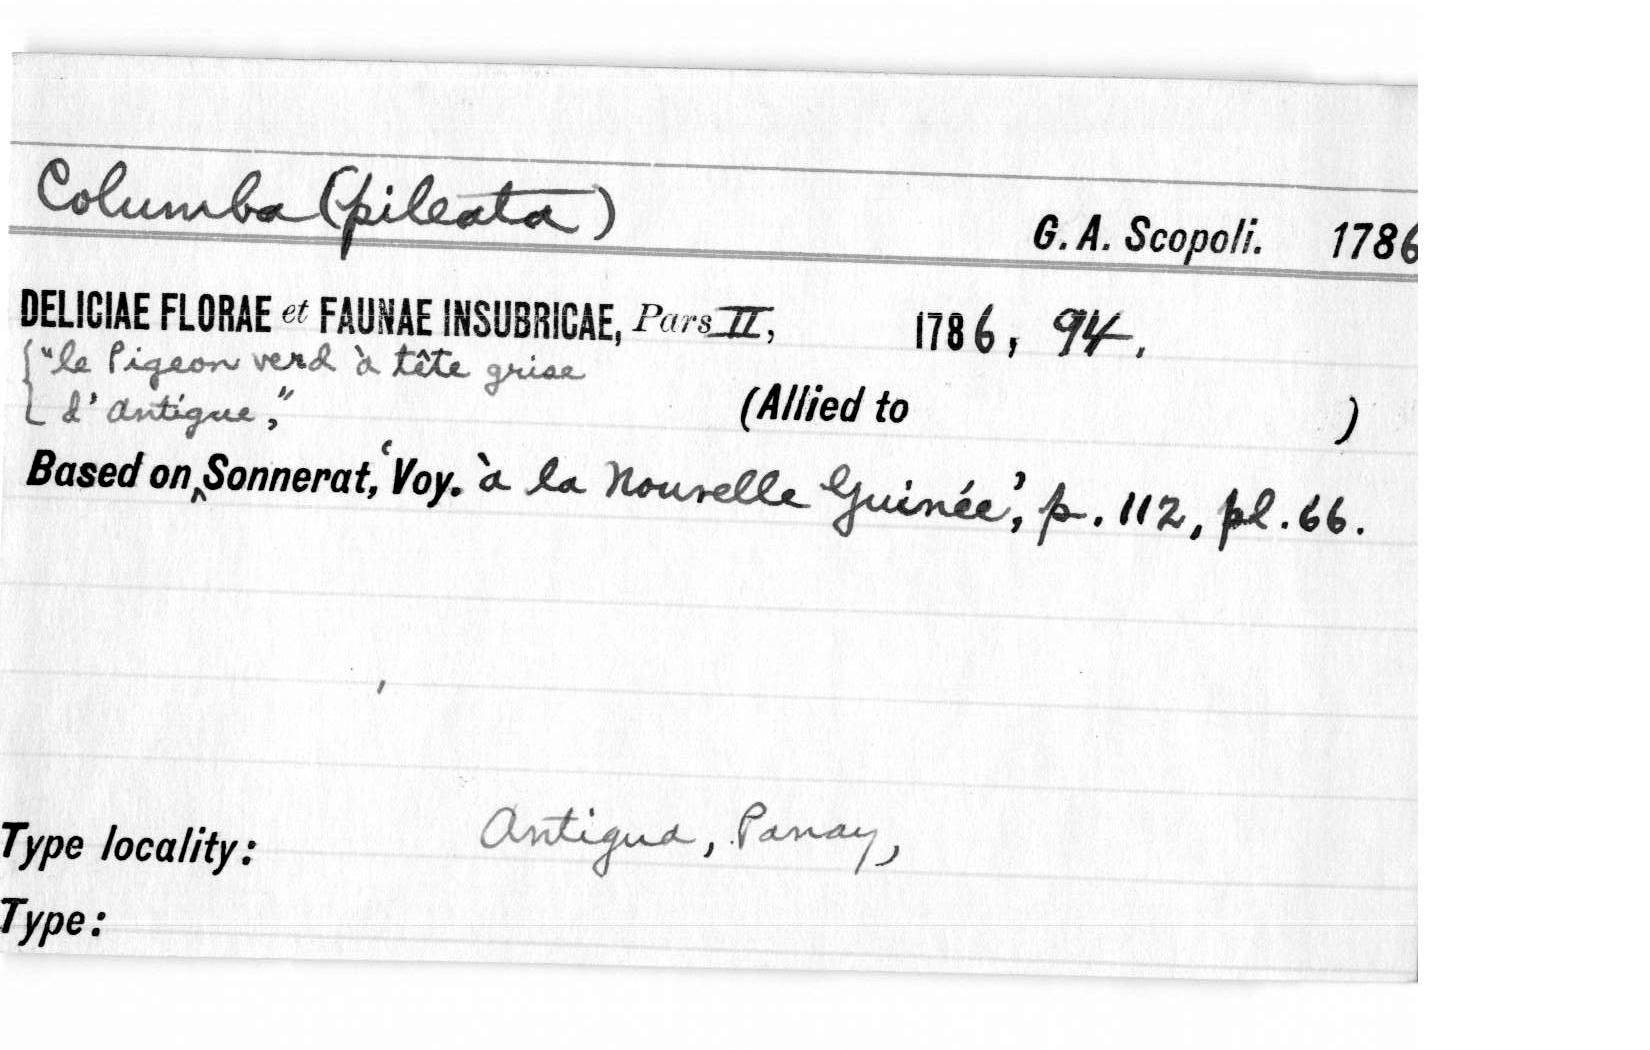 Columba (pileata)
G. A. Scopoli. 1786
DELICIAE FLORAE et FAUNAE INSUBRICAE, Pars II, 1786, 94.
"le Pigeon verd à tête grise
d'Antigue,"
(Allied to )
Based on ‸ Sonnerat, 'Voy. à la Nouvelle Guinée', p. 112, pl. 66.
Type locality: Antigua, Panay,
Type: